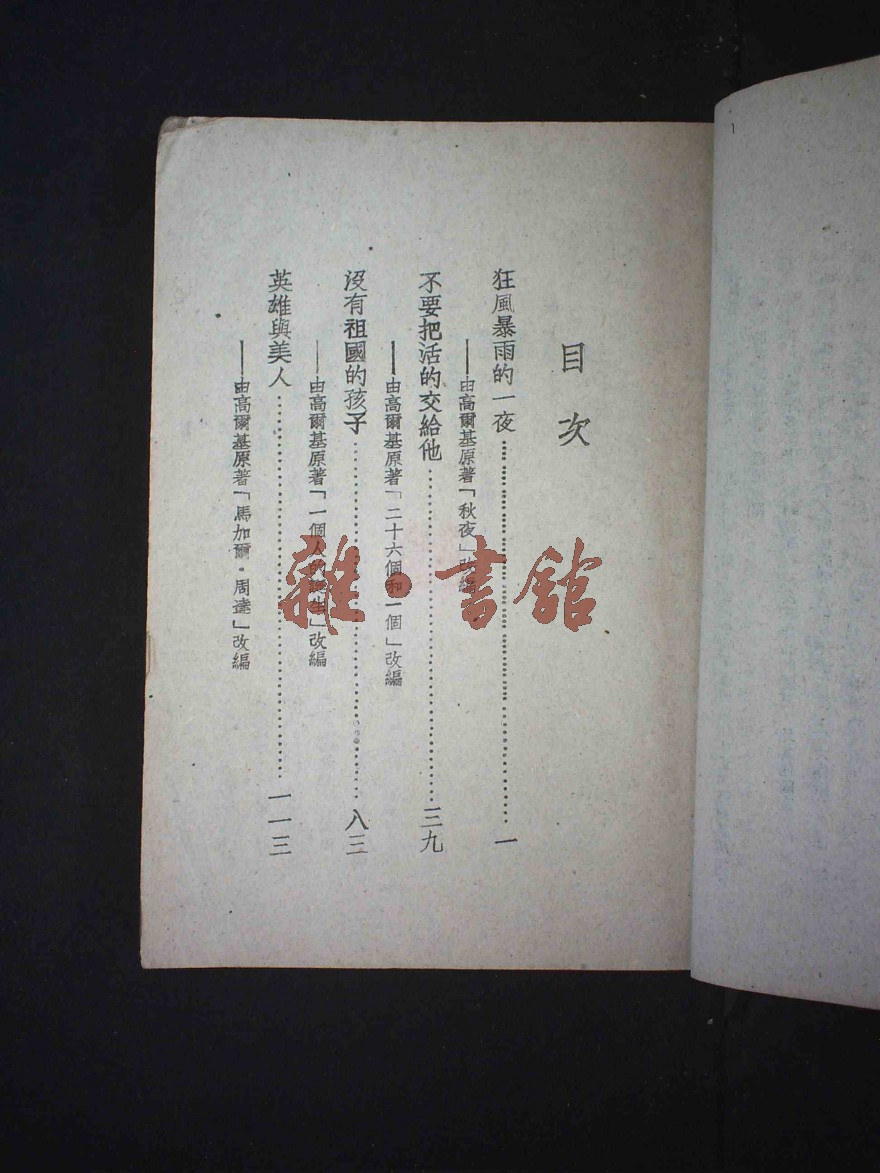 目次
狂風暴雨的一夜……一
——由高爾基原著「秋夜」改編
不要把活的交給他……三九
——由高爾基原著「二十六個和一個」改編
沒有祖國的孩子……八三
——由高爾基原著「一個人的誕生」改編
英雄與美人……一一三
——由高爾基原著「馬加爾·周達」改編
雜·書館